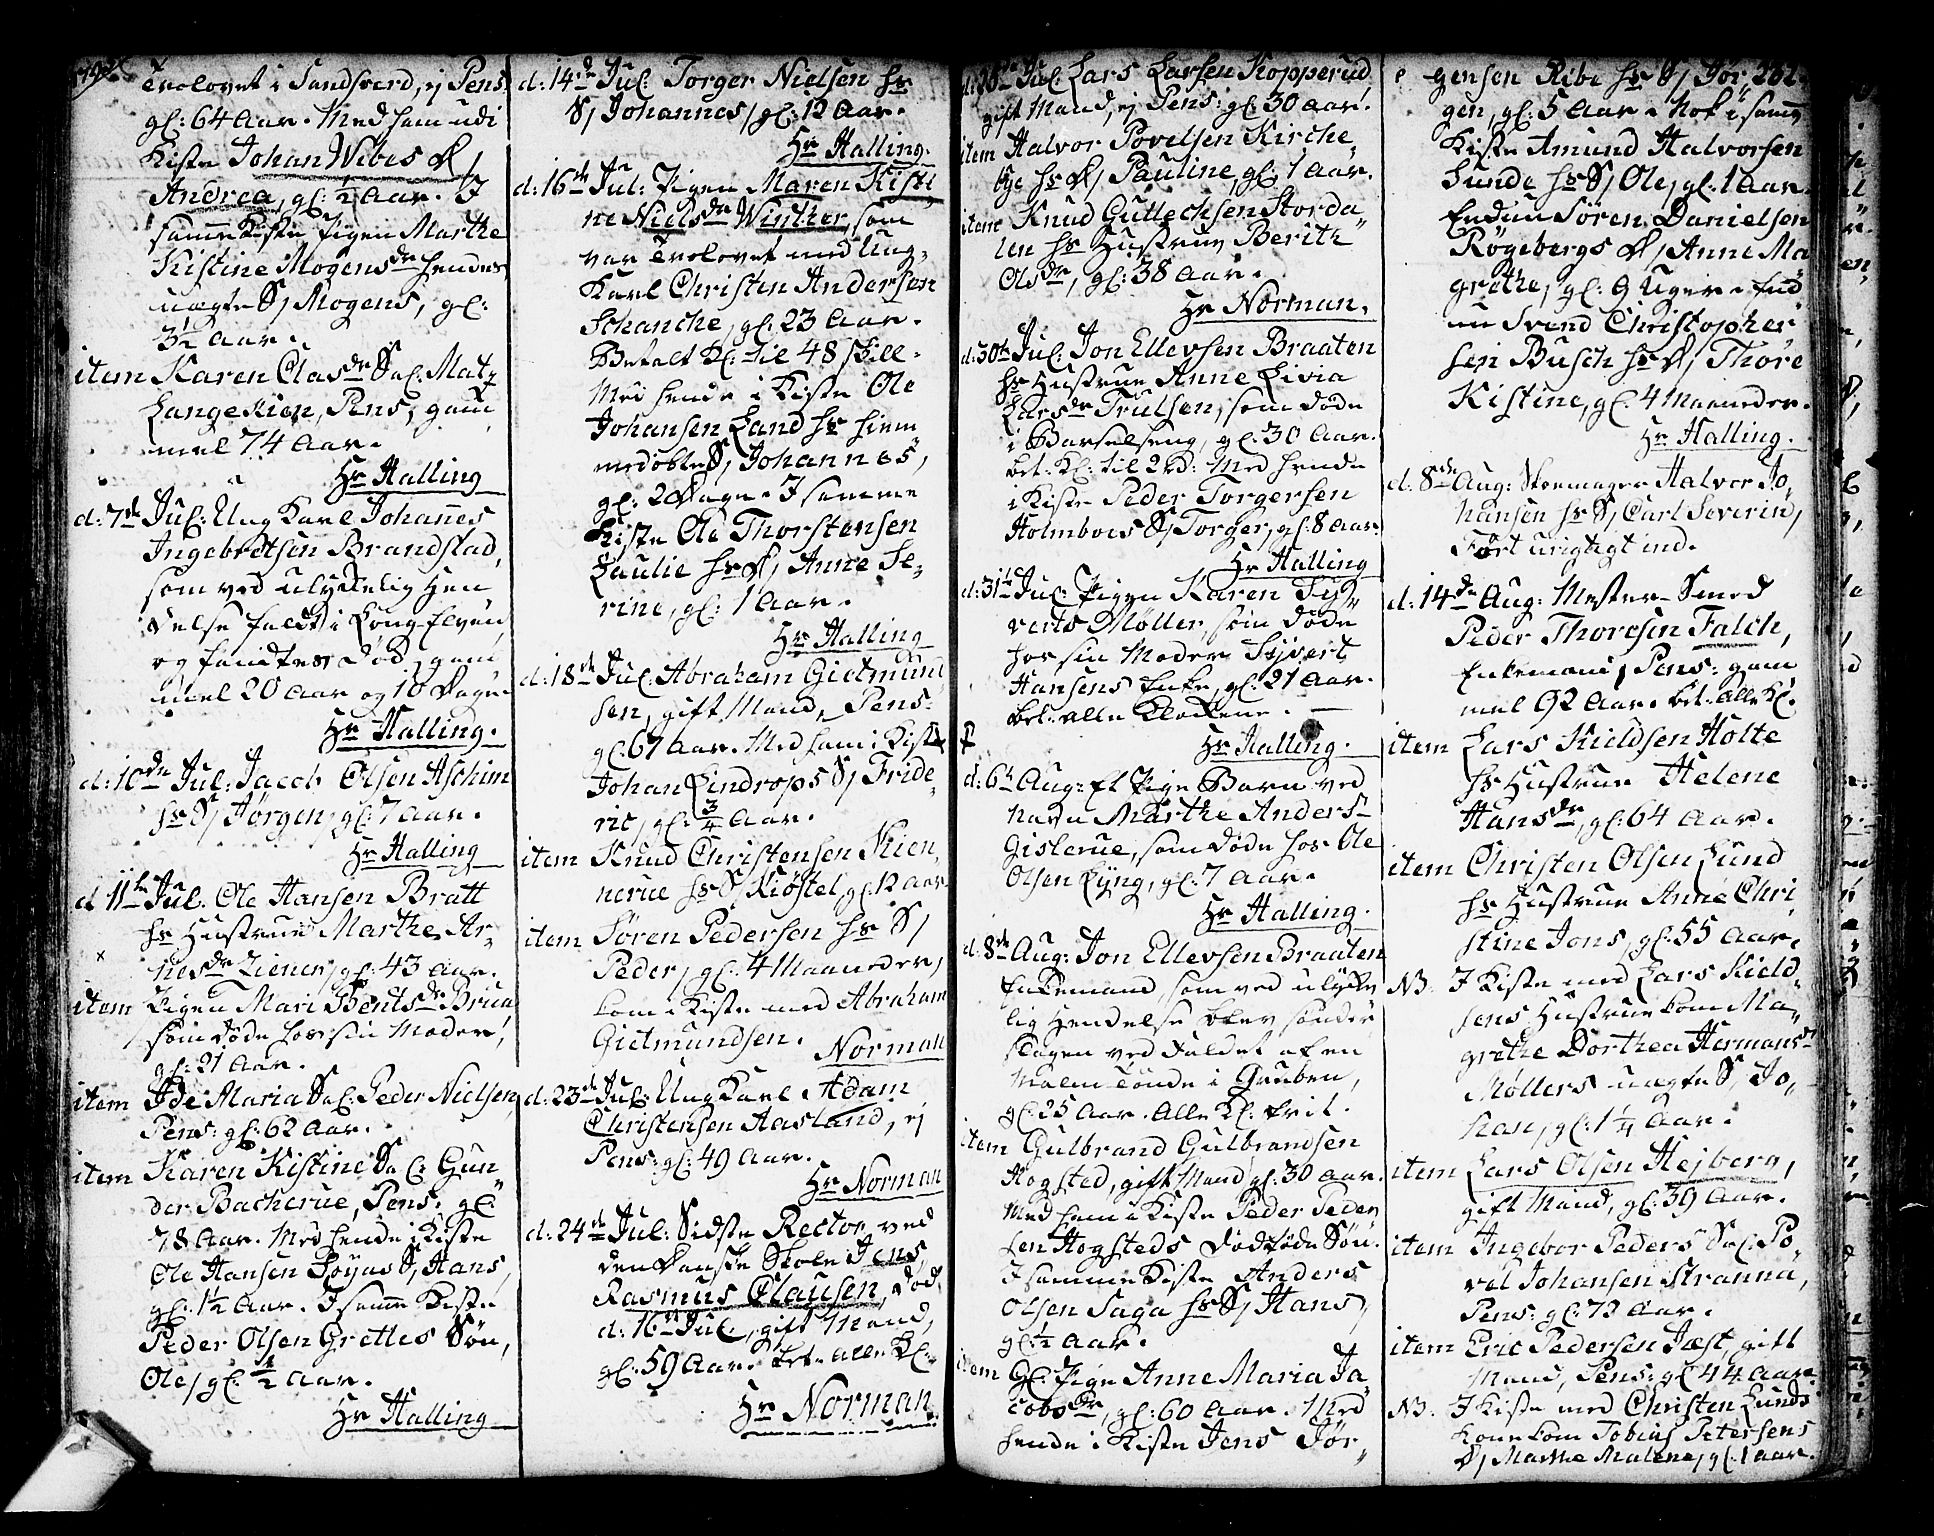 Trolovet i Sandsverd, ej Pens:
gl: 64 Aar. Med ham udi
Kiste Johan Wibes D/
Andrea, gl: ½ Aar. I
samme Kiste Pigen Marthe
Kistine Mogensdr hendes
uægte S/ Mogens, gl:
3½ Aar.
item Karen Clasdr Sal. Matz
Langekien, Pens, gam
mel 74 Aar.
Hr Halling
d: 7de Jul: Ung Karl Johannes
Ingebretsen Brandstad,
som ved ulykkelig Hen
delse faldt i Long Elven
og fandtes Død, gam
mel 20 Aar og 10 Dage
Hr Halling.
d: 10de Jul: Jacob Olsen Aschim
hs S/ Jørgen, gl: 7 Aar.
Hr Halling
d 11te Jul. Ole Hansen Bratt
hs Hustrue Marthe Ar-
nesdr Ziener, gl: 43 Aar.
item Pigen Mari Bentsdr Brua
som døde hos sin Moder,
gl: 21 Aar.
item Ide Maria Sal. Peder Nielsen,
Pens: gl: 62 Aar.
item Karen Kistine Sal. Gun
der Bacherue, Pens: gl:
78 Aar. Med hende i Kiste
Ole Hansen Søyas S/ Hans,
gl: 1½ Aar. I samme Kiste
Peder Olsen Grettes Søn,
Ole, gl: ½ Aar.
Hr Halling
d: 14de Jul: Torger Nielsen hs
S/ Johannes, gl: 12 Aar.
Hr Halling.
d: 16de Jul: Pigen Maren Kisti
ne Nielsdr Winther, som
var Trolovet med Ung-
Karl Christen Andersen
Schanche, gl: 23 Aar.
Betalt Kl: til 48 skill.
Med hende i Kiste Ole
Johansen Land hs hiem
medøbte S/ Johannes,
gl: 2 Dage. I samme
Kiste Ole Thorstensen
Laulie hs D/ Anne Se-
rine, gl: 1 Aar.
Hr Halling
d: 18de Jul: Abraham Gietmund
sen, gift Mand, Pens:
gl: 67 Aar. Med ham i Kiste
Johan Lindrops S/ Fride-
ric, gl: ¾ Aar.
item Knud Christensen Kien-
nerue hs S/ Kiøstel, gl: 12 Aar
item Søren Pedersen hs S/
Peder, gl: 4 Maaneder,
kom i Kiste med Abraham
Gietmundsen. Norman
d: 23de Jul: Ung Karl Adam
Christensen Aasland, ej
Pens: gl: 49 Aar.
Hr Norman
d: 24de Jul: Sidste Rector ved
den Danske Skole Jens
Rasmus Clausen, Død
d: 16de Jul:, gift Mand,
gl: 59 Aar. bet: alle Kl:
Hr Norman
Jul: Lars Larsen Kopperud
gift Mand, ej Pens: gl: 30 Aar.
item Halvor Povelsen Kirche
bye hs D/ Pauline, gl: 1 Aar.
item Knud Gullechsen Storda-
len hs Hustrue Berith
Olsdr, gl: 38 Aar.
Hr Norman.
d: 30te Jul: Jon Ellevsen Braaten
hs Hustrue Anne Livia
Larsdr Trulsen, som døde
i Barselseng, gl: 30 Aar.
bet: Kl: til 2 rd: Med hende
i Kiste Peder Torgersen
Holmboes S/ Torger, gl: 8 Aar.
Hr Halling
d: 31te Jul: Pigen Karen Sy-
verts Møller, som døde
hos sin Moder Syvert
Hansens Enke, gl: 21 Aar.
bet: alle Klokkene. —
Hr Halling.
d: 6te Aug: Et Pige Barn ved
Navn Marthe Anders-
Gislerue, som døde hos Ole
Olsen Lyng, gl: 7 Aar.
Hr Halling.
d: 8de Aug: Jon Ellevsen Braaten
Enkemand, som ved ulykke
lig Hendelse blev sønder
slagen ved Faldet af en
Malm Tønde i Gruben,
gl: 25 Aar. Alle Kl: frit.
item Gulbrand Gulbrandsen
Hogsted, gift Mand, gl: 30 Aar.
Med ham i Kiste Peder Peder
sen Hogsteds Dødfødte Søn.
I samme Kiste Anders
Olsen Saga hs S/ Hans,
gl: ½ Aar.
item Gl: Pige Anne Maria Ja-
cobsdr, gl: 60 Aar. Med
hende i Kiste Jens Jør-
gensen Ribe hs S/ Jør 282.
gen, gl: 5 Aar. Nok i samme
Kiste Amund Halvorsen
Lunde hs S/ Ole, gl: 1 Aar.
Endnu Søren Danielsen
Røgebergs D/ Anne Ma
grethe, gl: 9 Uger. End
nu Svend Christopher
sen Busch hs D/ Thore
Kistine, gl: 4 Maaneder.
Hr Halling.
d: 8de Aug: Skomager Halvor Jo-
hansen hs S/ Carl Severin,
Ført urigtigt ind.
d: 14de Aug: Mester-Smed
Peder Thoresen Falch,
Enkemand, Pens: gam
mel 92 Aar. bet: Alle Kl:
item Lars Kieldsen Holte
hs Hustrue Helene
Hansdr, gl: 64 Aar.
item Christen Olsen Lund
hs Hustrue Anne Chri
stine Jons, gl: 55 Aar.
NB. I Kiste med Lars Kield
sens Hustrue kom Ma-
grethe Dorthea Hermansdr
Møllers uægte S/ Jo-
han, gl: 1¼ Aar.
item Lars Olsen Hejberg,
gift Mand, gl: 39 Aar.
item Ingebor Peders Sal. Po-
vel Johansen Stranna,
Pens: gl: 72 Aar.
item Eric Pedersen Jæst, gift
Mand, Pens: gl: 44 Aar.
NB. I Kiste med Christen Lunds
Kone kom Tobias Petersens
D/ Marthe Malene, gl: 1 Aar.